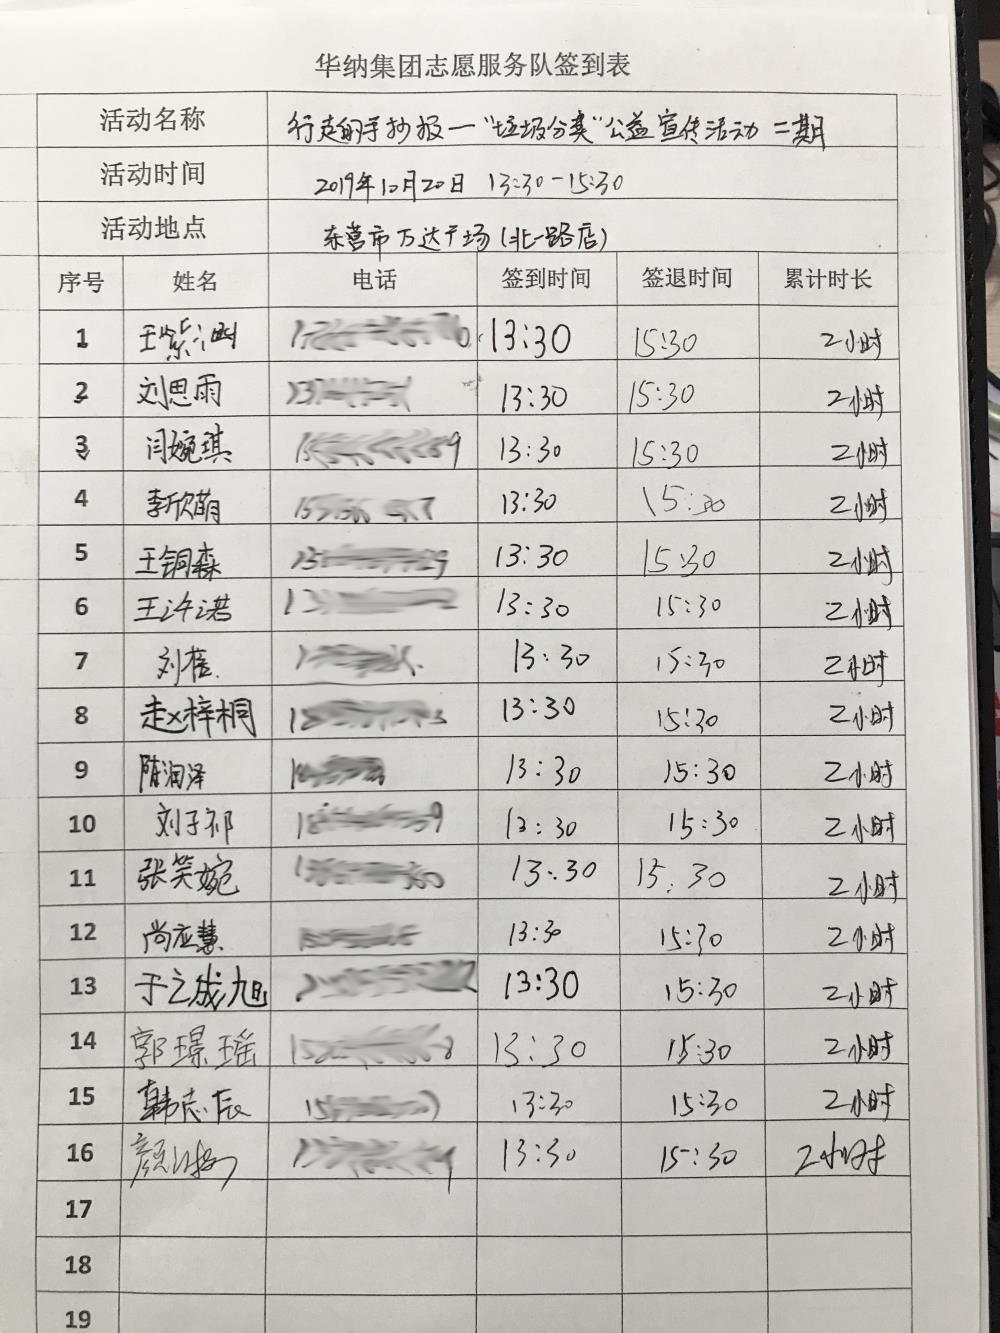 华纳集团志愿服务队签到表
活动名称 行走的手抄报一“垃圾分类”公益宣传活动 二期
活动时间 2019年10月20日 13:30-15:30
活动地点 东营市万达广场(北一路店)
序号 姓名 电话 签到时间 签退时间 累计时长
1 王紫 13:30 15:30 2小时
2 刘思雨 13:30 15:30 2小时
3 闫婉琪 13:30 15:30 2小时
4 李欣萌 13:30 15:30 2小时
5 王铜森 13:30 15:30 2小时
6 王许诺 13:30 15:30 2小时
7 刘 13:30 15:30 2小时
8 赵梓桐 13:30 15:30 2小时
9 陈润泽 13:30 15:30 2小时
10 刘子祁 13:30 15:30 2小时
11 张笑婉 13:30 15:30 2小时
12 尚应慧 13:30 15:30 2小时
13 于之成旭 13:30 15:30 2小时
14 郭璟瑶 13:30 15:30 2小时
15 韩志辰 13:30 15:30 2小时
16 颜 13:30 15:30 2小时
17
18
19